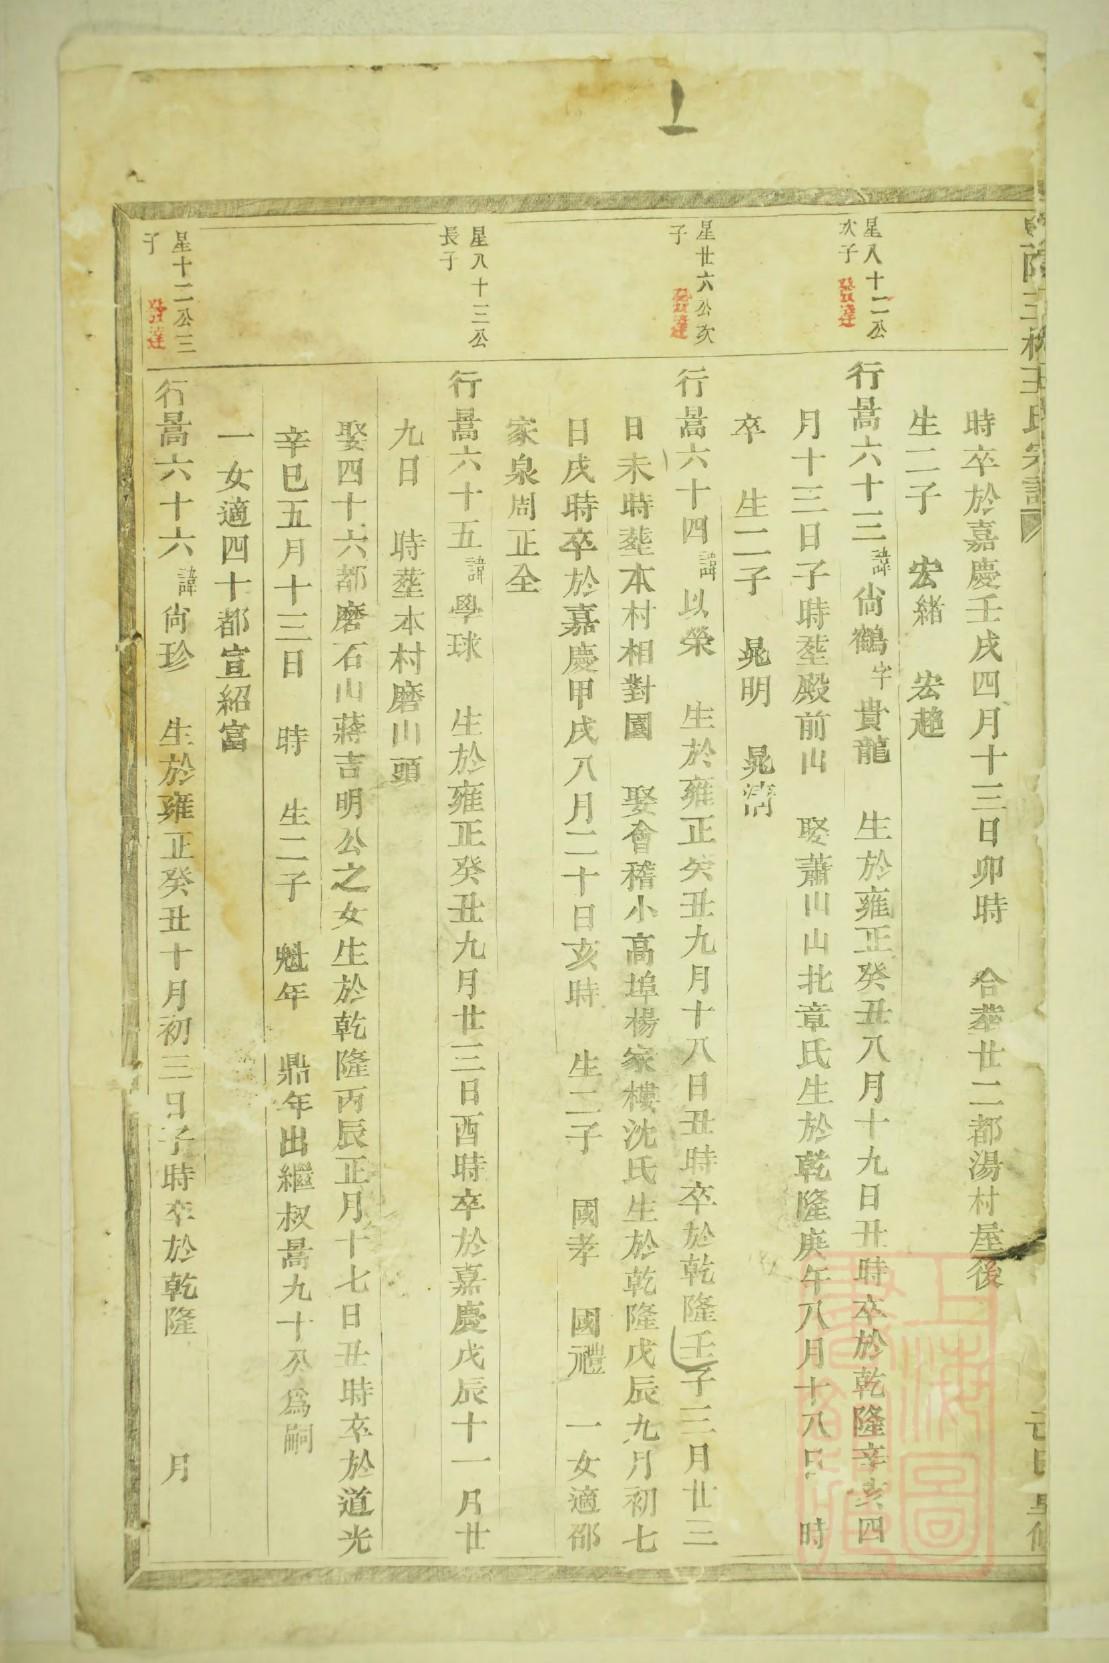 時卒於嘉慶壬戌四月十三日卯時 合塟廿二都湯村屋後
生二子 宏緒 宏趨
星八十二公次子
發達
行暠六十三諱尙鶴字貴龍 生於雍正癸丑八月十九日丑時卒於乾隆辛亥四
月十三日子時塟殿前山 娶蕭山山北章氏生於乾隆庚午八月十八日 時
卒 生二子 晁明 晁淸
星廿六公次子
發達
行暠六十四諱以榮 生於雍正癸丑九月十八日丑時卒於乾隆壬子三月廿三
日未時塟本村相對園 娶會稽小高埠楊家樓沈氏生於乾隆戊辰九月初七
日戌時卒於嘉慶甲戌八月二十日亥時 生二子 國孝 國禮 一女適邵
家泉周正全
星八十三公長子
行暠六十五諱學球 生於雍正癸丑九月廿三日酉時卒於嘉慶戊辰十一月廿
九日 時塟本村磨山頭
娶四十六都磨石山蔣吉明公之女生於乾隆丙辰正月十七日丑時卒於道光
辛巳五月十三日 時 生二子 魁年 鼎年出繼叔暠九十公爲嗣
一女適四十都宣紹富
星十二公三子
發達
行暠六十六諱尙珍 生於雍正癸丑十月初三日子時卒於乾隆 月
上海圖書館藏